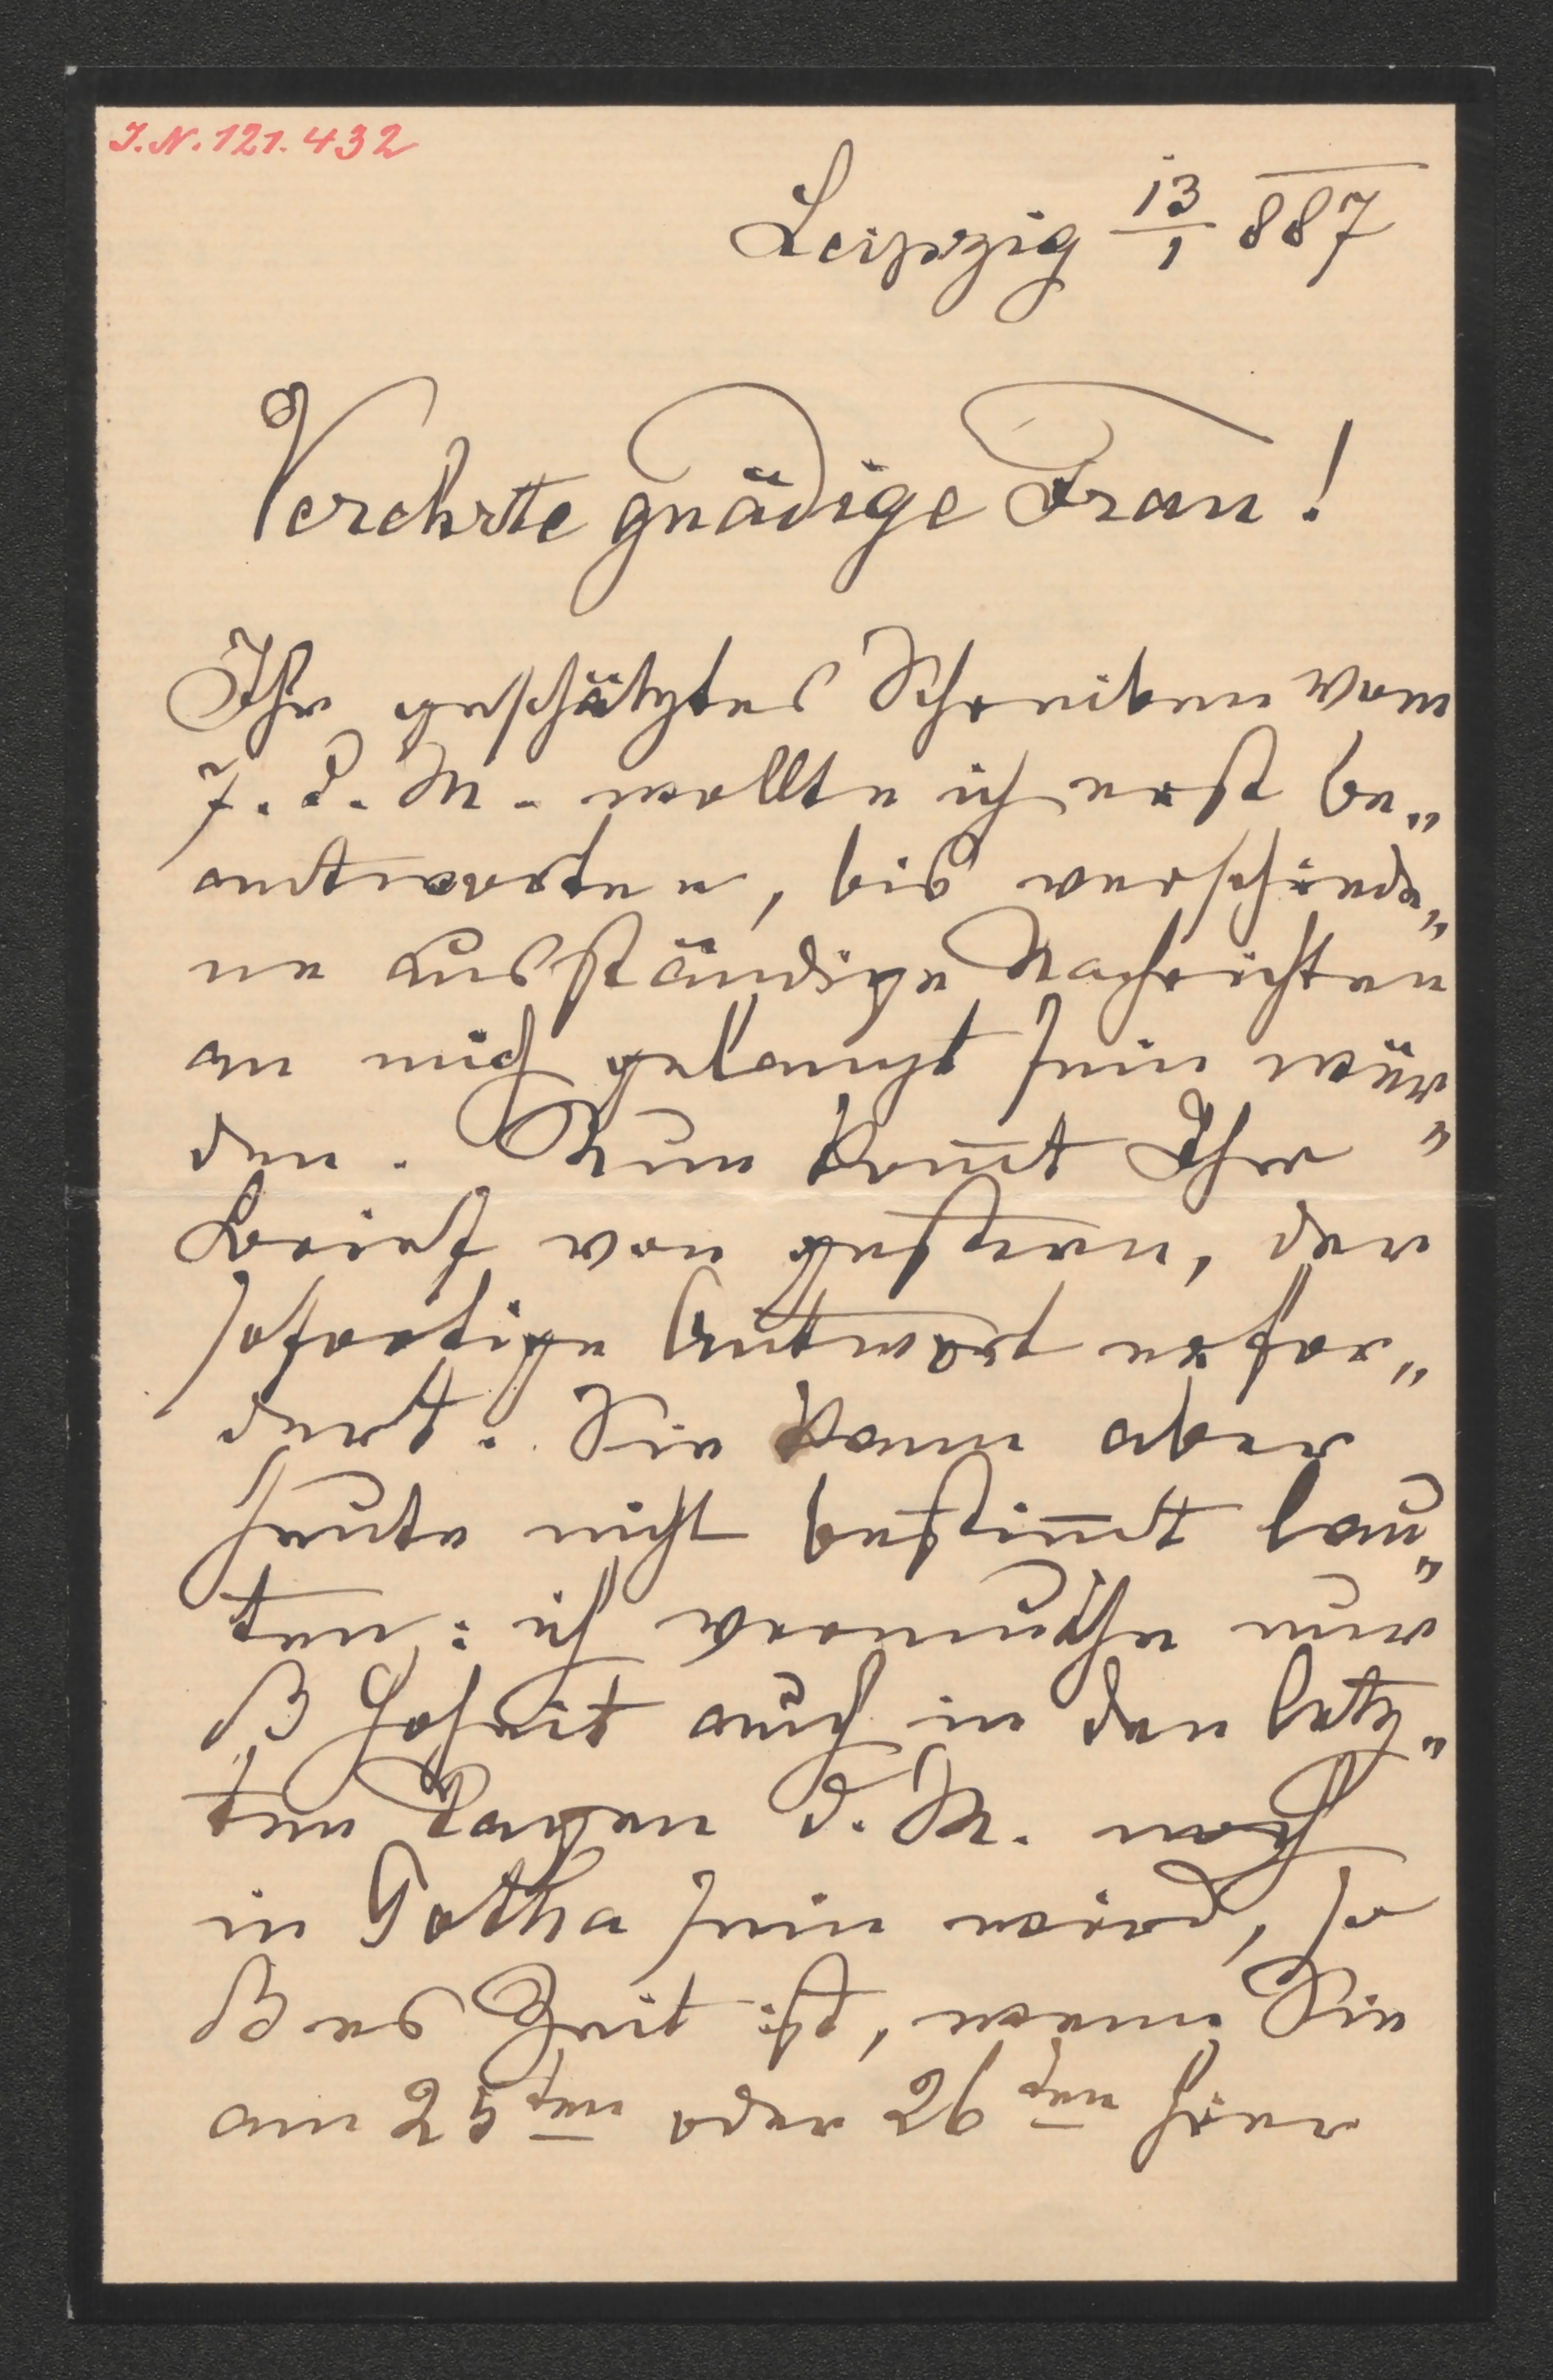 I.N. 121.432
Leipzig 13/1 887
Verehrte gnädige Frau!
Ihr geschätztes Schreiben vom
7. d. M. wollte ich erst be„
antworten, bis verschiede„
ne ausständige Nachrichten
an mich gelangt sein wür„
den. Nun kom̄t Ihr
Brief von gestern, der
sofortige Antwort erfor„
dert. Sie kann aber
heute nicht bestim̄t lau„
ten: ich vermuthe nur
ß Hoheit auch in den letz„
ten Tagen d. M. noch
in Gotha sein wird, so
ß es Zeit ist, wenn Sie
am 25ten oder 26ten hier